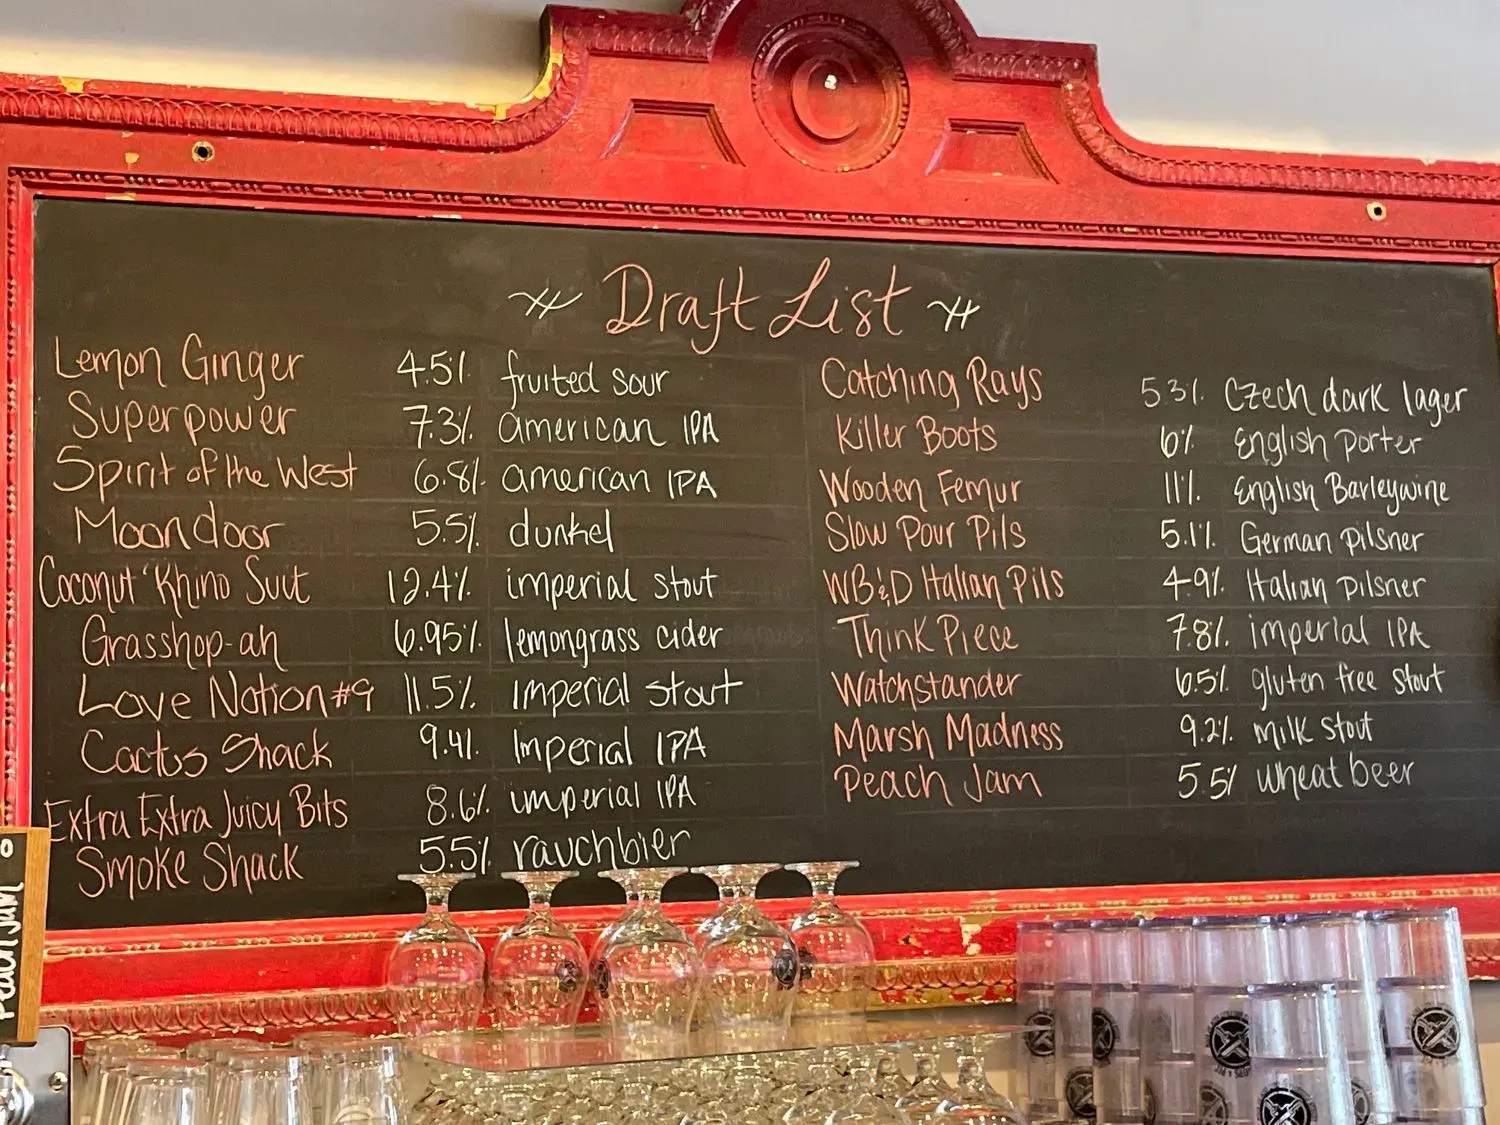 C
Draft List
Lemon Ginger 4.5% fruited sour
Superpower 7.3% american IPA
Spirit of the West 6.8% american IPA
Moondoor 5.5% dunkel
Coconut Rhino Suit 12.4% imperial stout
Grasshop-ah 6.95% lemongrass cider
Love Notion #9 11.5% Imperial stout
Cactus Shack 9.4% Imperial IPA
Extra Extra Juicy Bits 8.6% imperial IPA
Smoke Shack 5.5% rauchbier
Catching Rays 5.3% Czech dark lager
Killer Boots 6% English Porter
Wooden Femur 11% English Barleywine
Slow Pour Pils 5.1% German Pilsner
WB&D Italian Pils 4.9% Italian Pilsner
Think Piece 7.8% imperial IPA
Watchstander 6.5% gluten free stout
Marsh Madness 9.2% milk stout
Peach Jam 5.5% wheat beer
Peach Jam